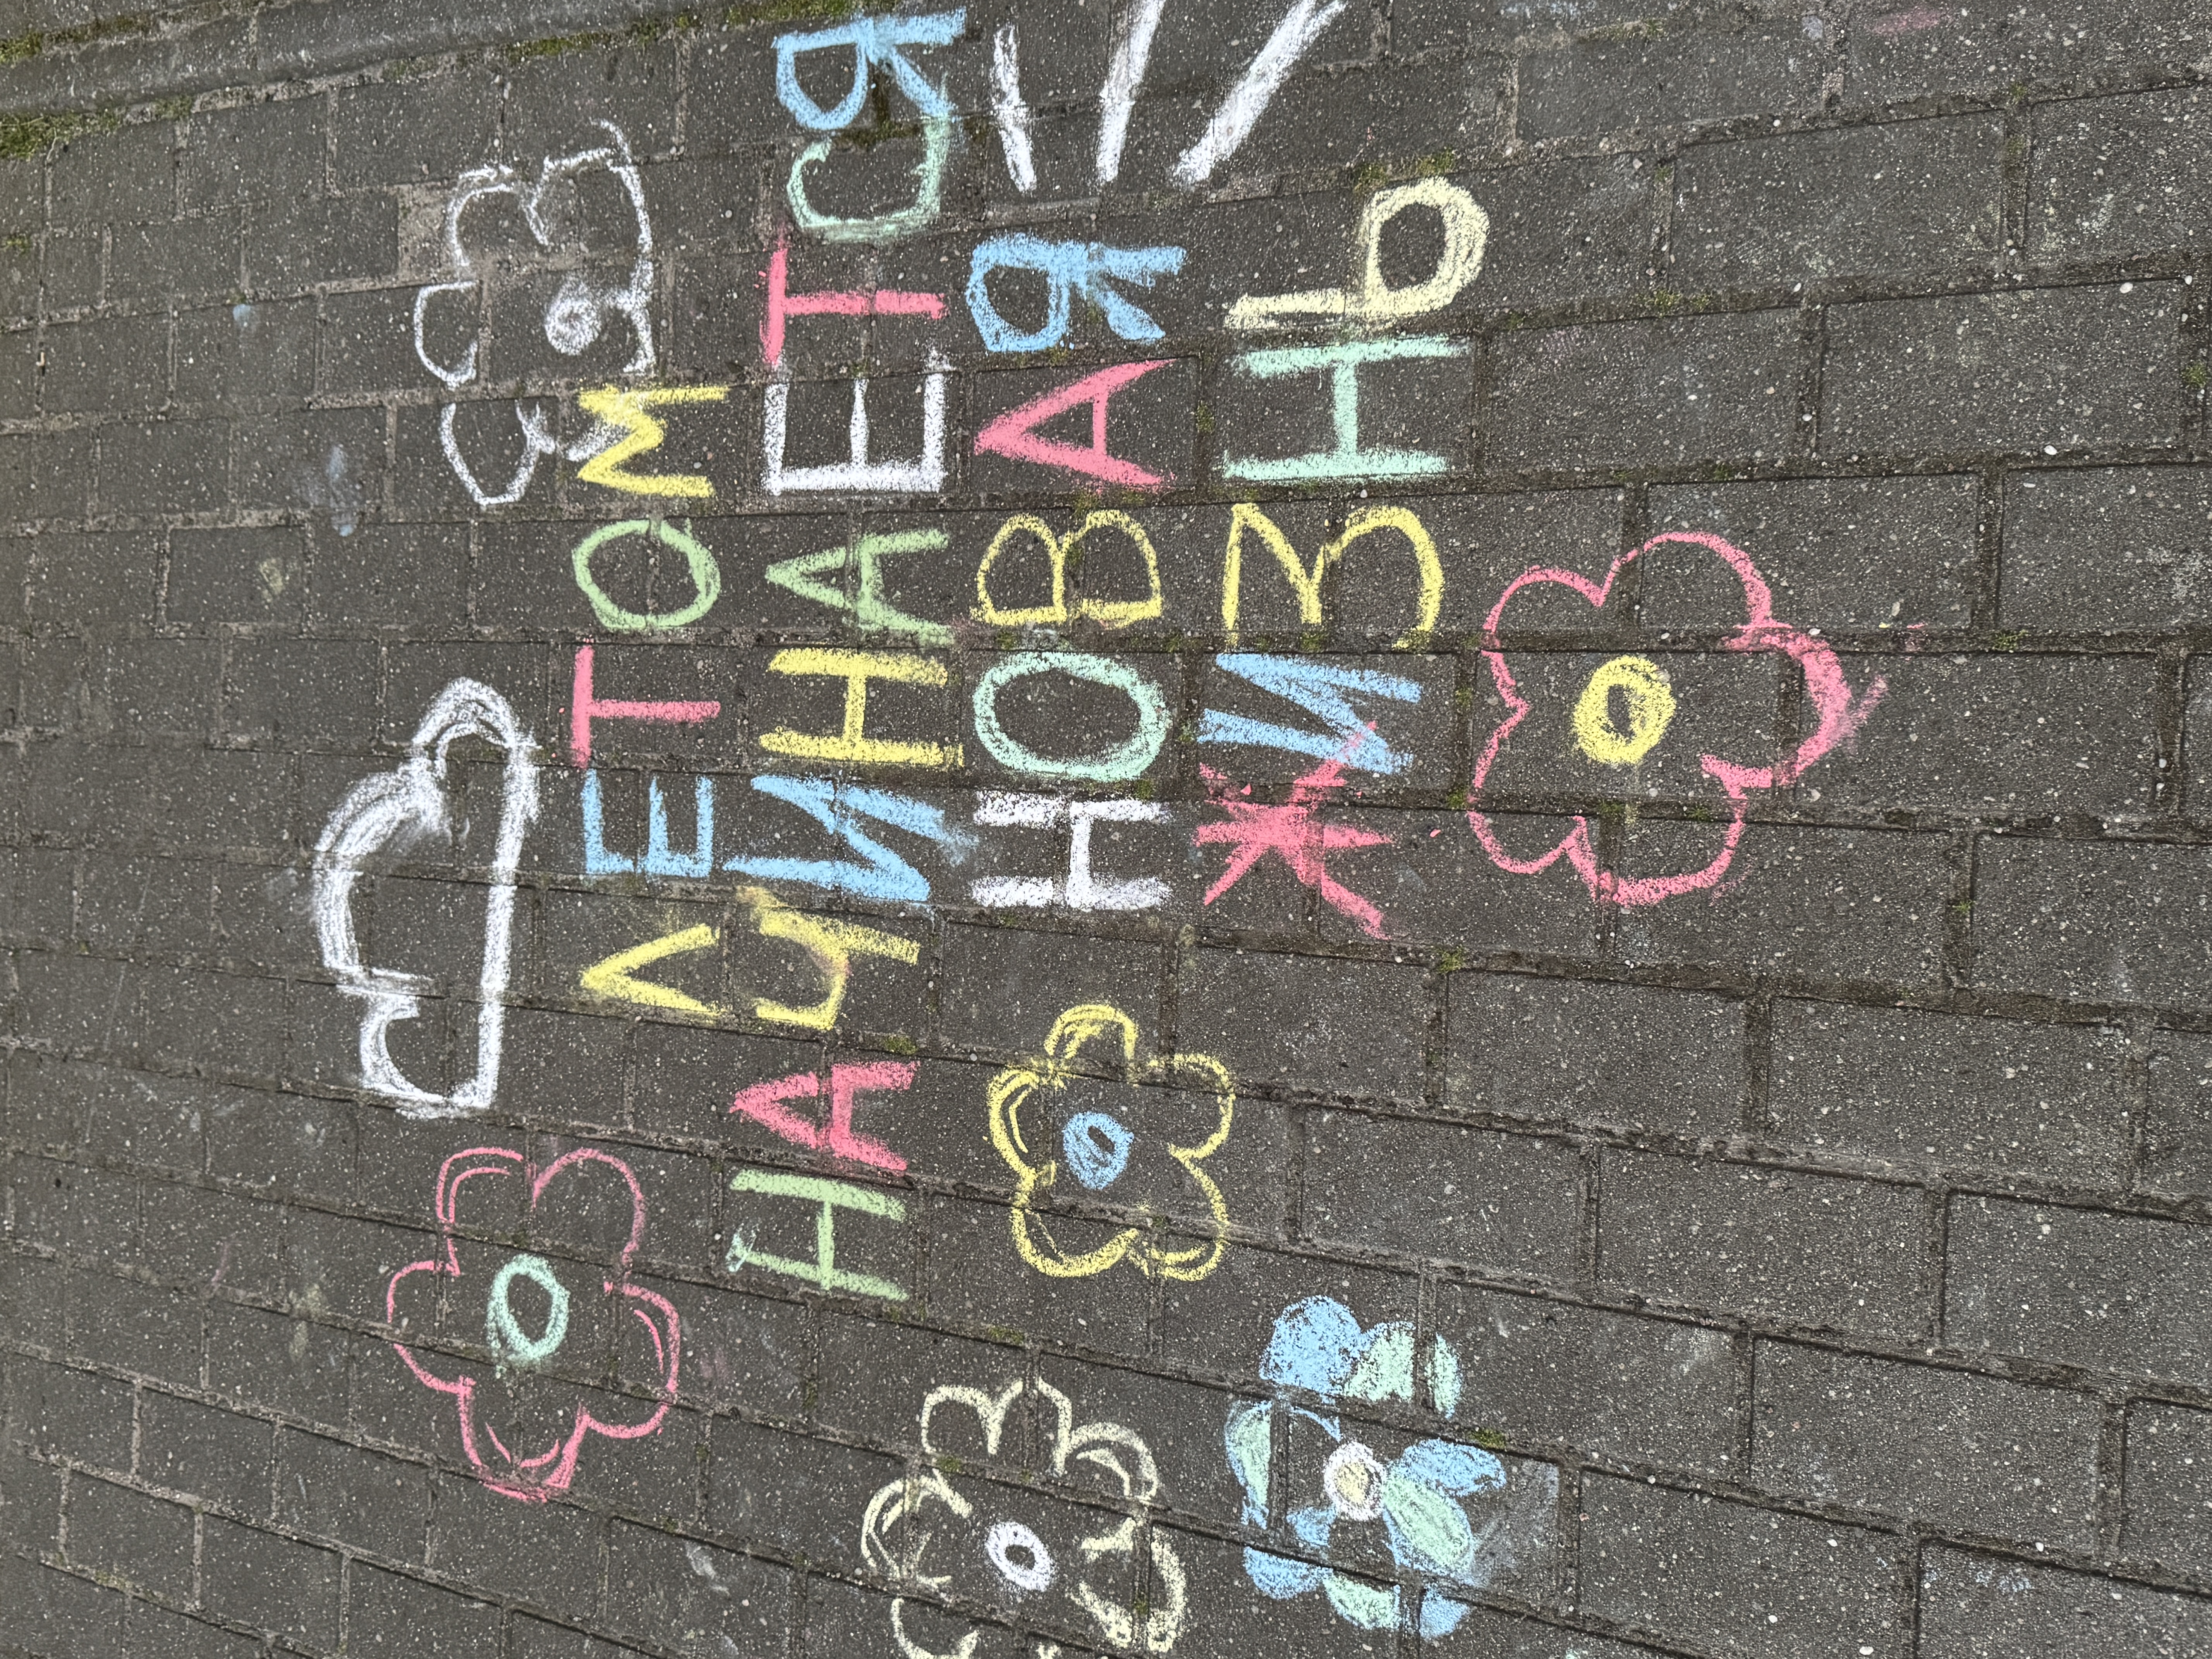 ЛЕТОМ
НАЧИНАЕТСЯ
НОВАЯ
ЖИЗНЬ